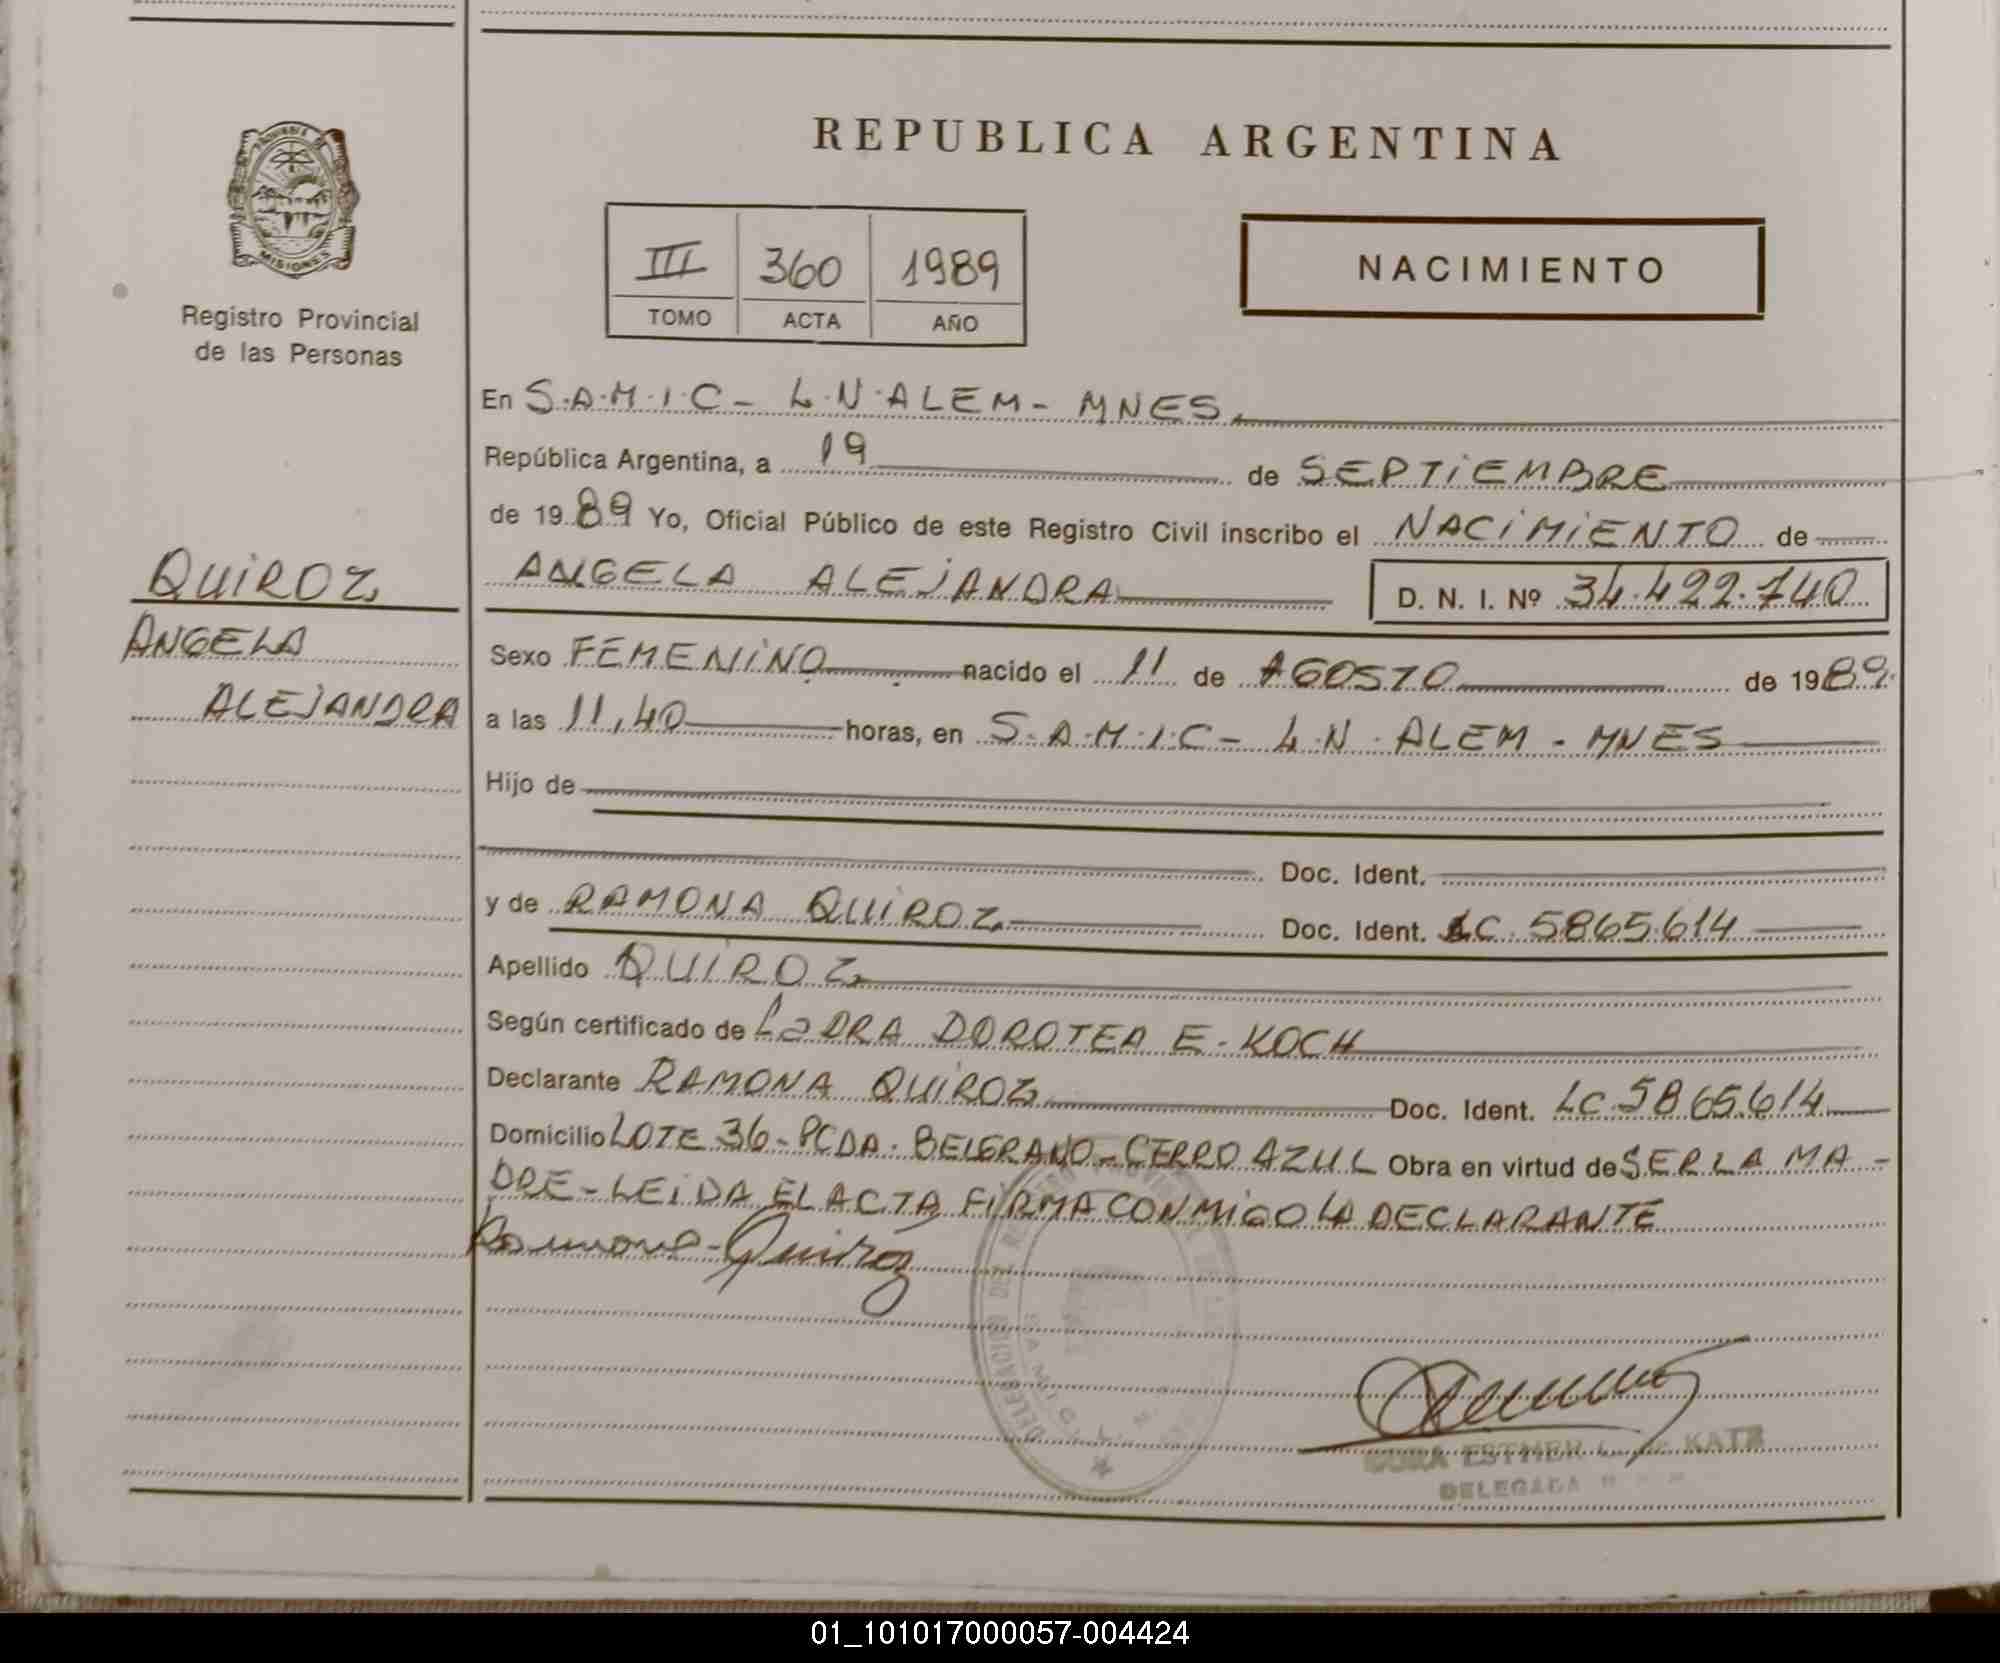 REPUBLICA ARGENTINA
III 360 1989
TOMO ACTA AÑO
NACIMIENTO
MISIONES
Registro Provincial
de las Personas
QUIROZ
ANGELA
ALEJANDRA
En S.A.M.I.C - L.N.ALEM - MNES
República Argentina, a 19 de SEPTIEMBRE
de 1989 Yo, Oficial Público de este Registro Civil inscribo el NACIMIENTO de
ANGELA ALEJANDRA D. N. I. Nº 34.422.740
Sexo FEMENINO nacido el 11 de AGOSTO de 1989
a las 11,40 horas, en S.A.M.I.C - L.N.ALEM - MNES
Hijo de
Doc. Ident.
y de RAMONA QUIROZ Doc. Ident. LC 5865614
Apellido QUIROZ
Según certificado de LA DRA DOROTEA E. KOCH
Declarante RAMONA QUIROZ Doc. Ident. LC 5865.614
Domicilio LOTE 36 - PCDA. BELGRANO - CERRO AZUL Obra en virtud de SER LA MA -
DRE - LEIDA EL ACTA FIRMA CONMIGO LA DECLARANTE
Ramona Quiroz
ESTHER KATZ
DELEGADA
01_101017000057-004424